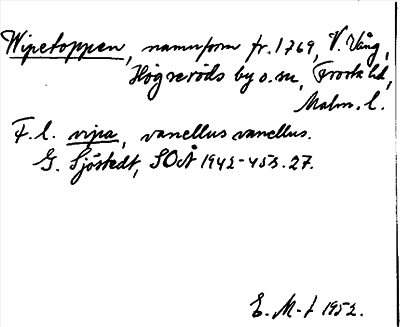 Wipetoppen, namnform fr. 1769, V. Vång,
Högseröds by o. sn, Frosta hd,
Malm. l.
F. l. vipa, vanellus vanellus.
G. Sjöstedt, SOÅ 1942-453. 27.
E. M-t 1952.